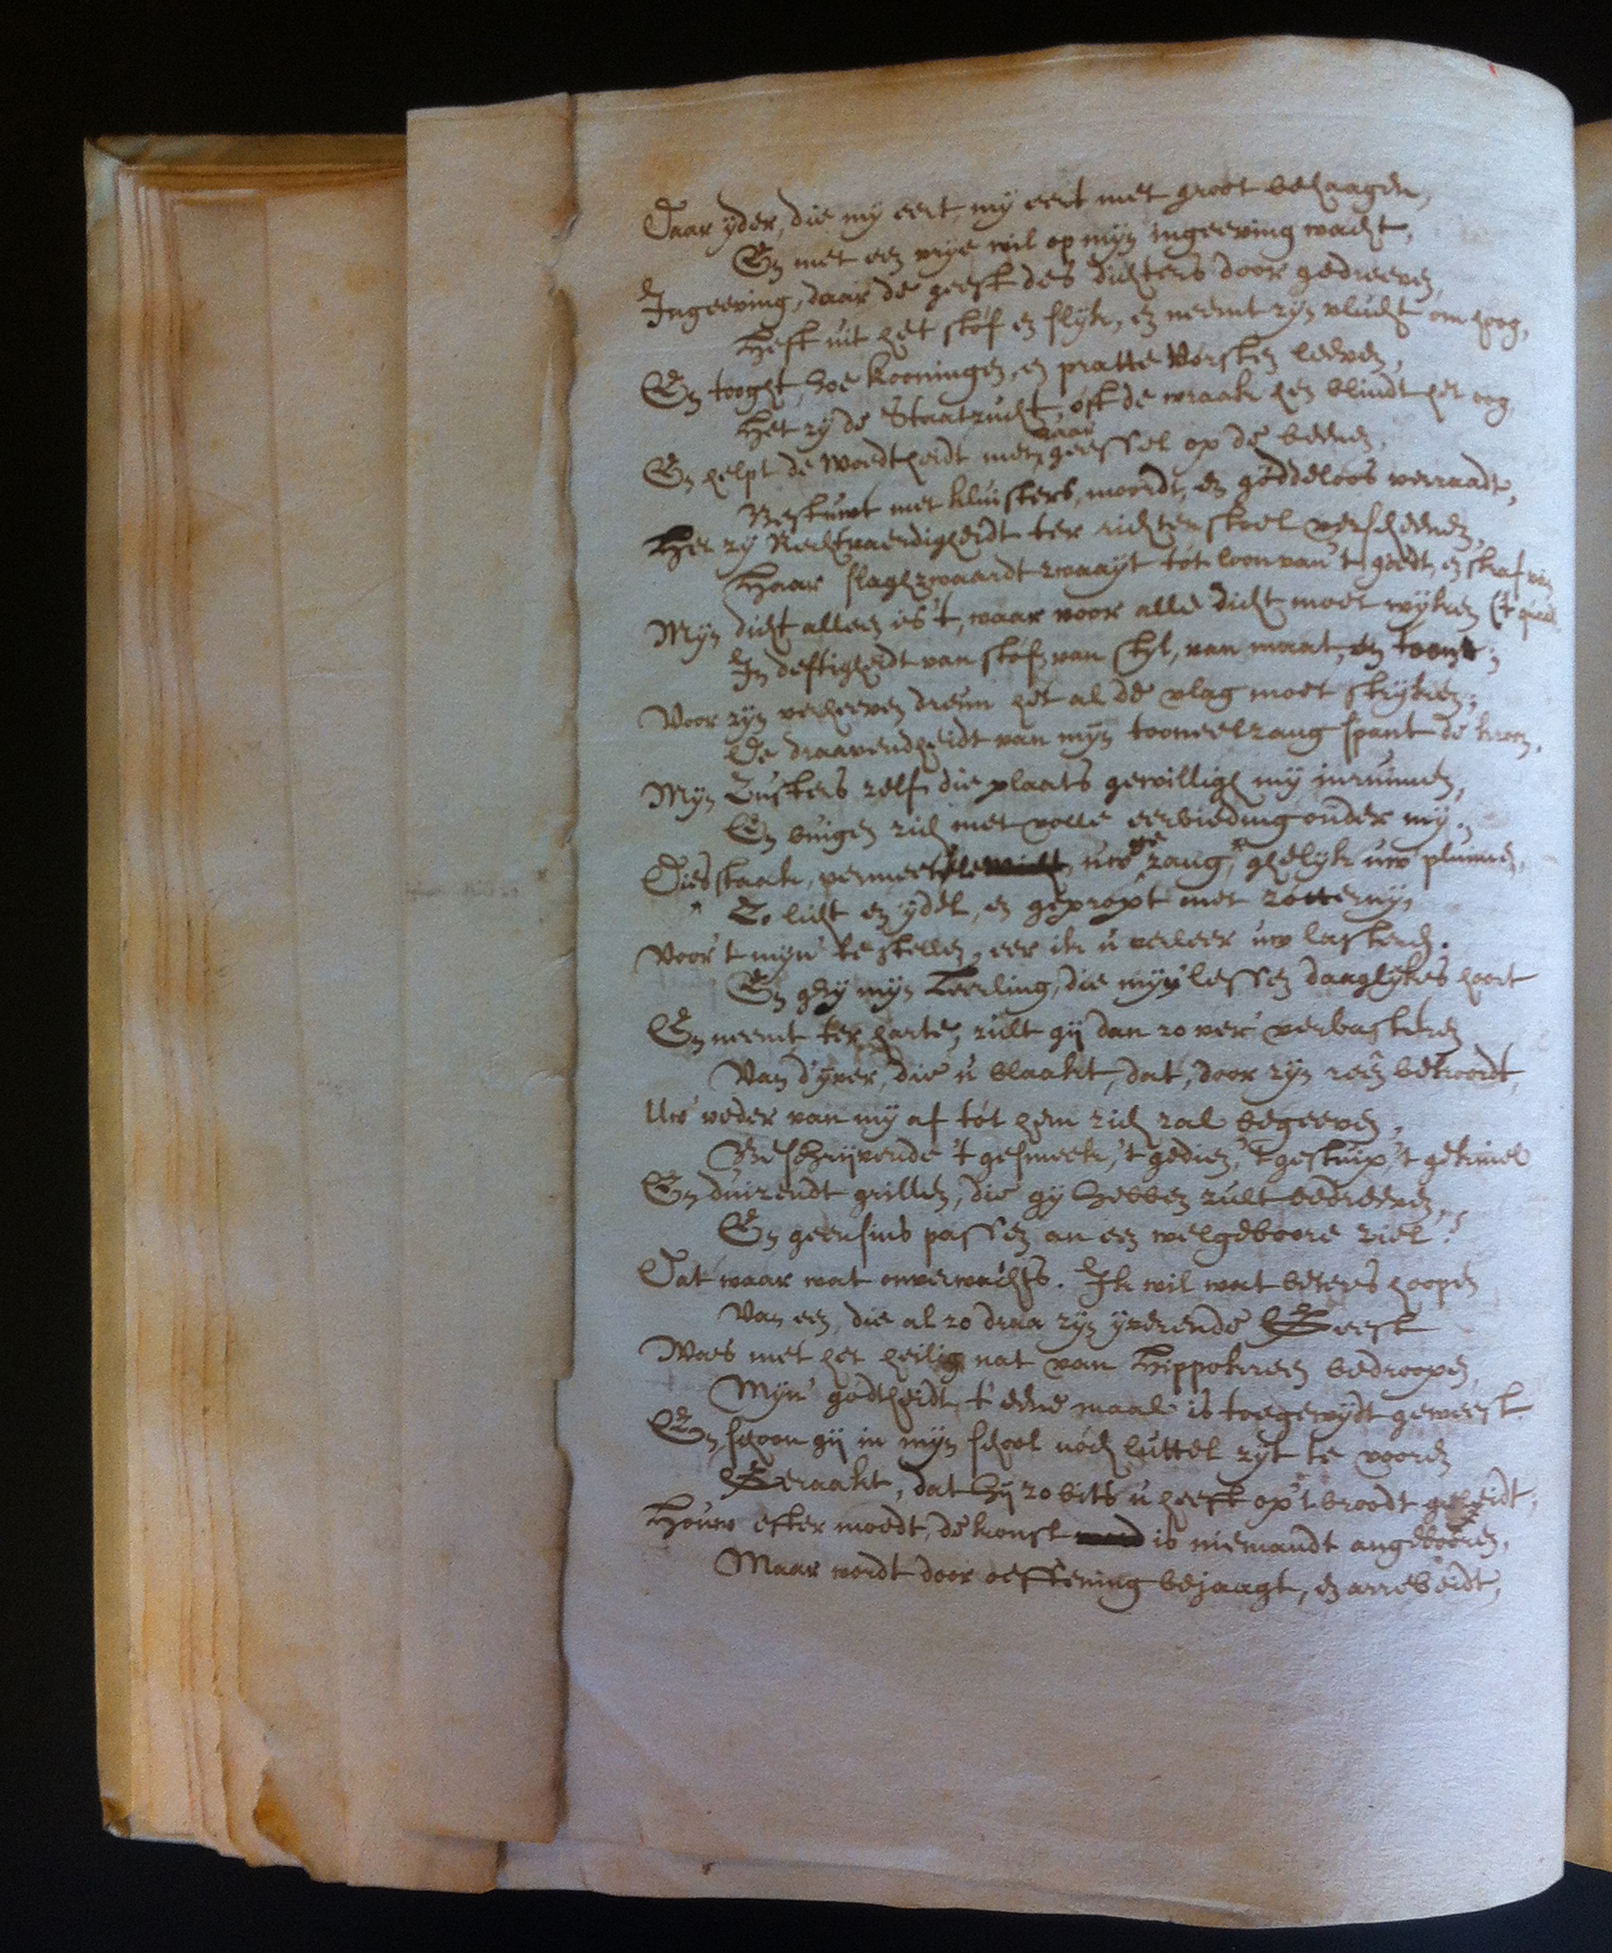 Daar yder, die my eert, my eert met groot behaagen,
En met een vrye wil op myn ingeeving wacht,
Ingeeving, daar de geest des dichters door gedreeven,
Heft uit het stof en slyk, en neemt zyn vlucht om hoog,
En tooght, hoe kooningen, en pratte Vorsten leeven,
Het zy de Staatzucht, oft de wraak hen blindt het oog,
En helpt de Woedtheidt met haar geessel op de beenen,
Bestuwt met kluisters, moordt, en goddeloos verraadt,
Het zy Rechtvaerdigheidt ter richterstoel verscheenen,
Haar slaghzwaardt zwaayt tot loon van 't goedt, en straf van
Myn dicht alleen is 't, waar voor alle dicht moet wyken (t' quaadt.
In deftigheidt van stof, van styl, van maat, en toon;
Voor zyn verheeven dreun het al de vlag moet stryken;
De draavendheidt van myn tooneelzang spant de kroon.
Myn Zusters zelf die plaats gewilligh my inruimen,
En buigen zich met volle eerbieding onder my.
Dies staak, vermeetle, uw ge zang, ghelyk uw pluimen,
Zo licht en ydel, en gepropt met zotterny,
Voor 't myn' te stellen, eer ik u verleer uw lasteren.
En ghy myn Leerling, die myn' lessen daaglykes hoort
En neemt ter harte, zult gy dan zo ver verbasteren
Van d'yver, die u blaakt, dat, door zyn reên bekoordt,
Uw' veder van my af tot hem zich zal begeeven,
Beschryvende 't gesmeek, 't gedien, 't gestuip, 't gekniel
En duizendt grillen, die gy hebben zult bedreeven,
En geensins passen an een welgeboore ziel?
Dat waar wat onverwachts. Ik wil wat beters hoopen
Van een, die al zo draa zyn yverende Geest
Was met het heilig nat van Hippokreen bedroopen,
Myn' godtheidt t' eene maal is toegewydt geweest.
En, schoon gy in myn school noch luttel zyt te vooren
Geraakt, dat hy zo bits u heeft op 't broodt geleidt,
Houw efter moedt, de konst is niemandt angebooren,
Maar wordt door oeffening bejaagt, en arrebeidt,